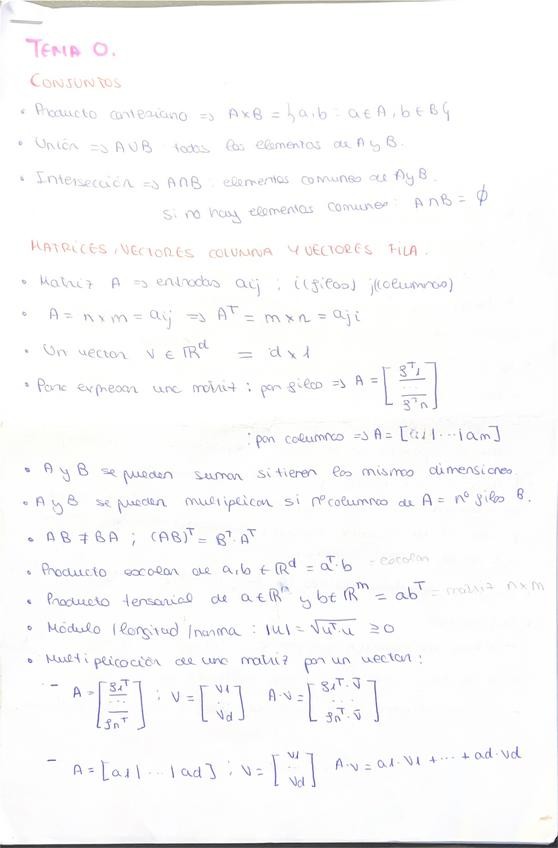 TEMA 0.
CONJUNTOS
• Producto cartesiano => A×B = {a,b : a∈A, b∈B}
• Unión => A∪B todos los elementos de A y B.
• Intersección => A∩B : elementos comunes de A y B.
si no hay elementos comunes: A∩B = ∅
MATRICES, VECTORES COLUMNA Y VECTORES FILA.
• Matriz A => entradas aij ; i(filas) j(columnas)
• A = n×m = aij => Aᵀ = m×n = aji
• Un vector v ∈ ℝᵈ = d×1
• Para expresar una matriz : por filas => A = [f1ᵀ / ... / fᵀn]
: por columnas => A = [a1|...|am]
• A y B se pueden sumar si tienen las mismas dimensiones.
• A y B se pueden multiplicar si nº columnas de A = nº filas B.
• AB ≠ BA ; (AB)ᵀ = Bᵀ·Aᵀ
• Producto escalar de a,b ∈ ℝᵈ = aᵀ·b = escalar
• Producto tensorial de a∈ℝⁿ y b∈ℝᵐ = abᵀ = matriz n×m
• Módulo /longitud /norma : |u| = √uᵀ·u ≥0
• Multiplicación de una matriz por un vector :
- A = [f1ᵀ / ... / fnᵀ] ; v = [v1 ... vd] A·v = [f1ᵀ·v̄ ... fnᵀ·v̄]
- A = [a1|...|ad] ; v = [v1 ... vd] A·v = a1·v1 + ... + ad·vd